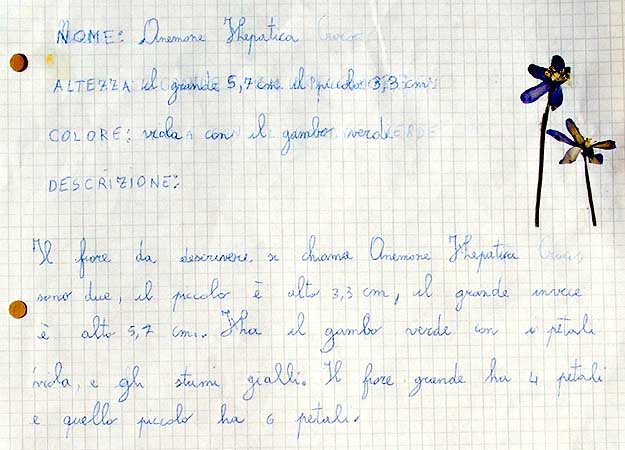 NOME: Anemone Hhepatica
ALTEZZA il grande 5,7 cm il piccolo 3,3 cm
COLORE: viola con il gambo verde
DESCRIZIONE:
Il fiore da descrivere si chiama Anemone Hhepatica
sono due, il piccolo è alto 3,3 cm, il grande invece
è alto 5,7 cm. Hha il gambo verde con i petali
viola, e gli stami gialli. Il fiore grande ha 4 petali
e quello piccolo ha 6 petali.